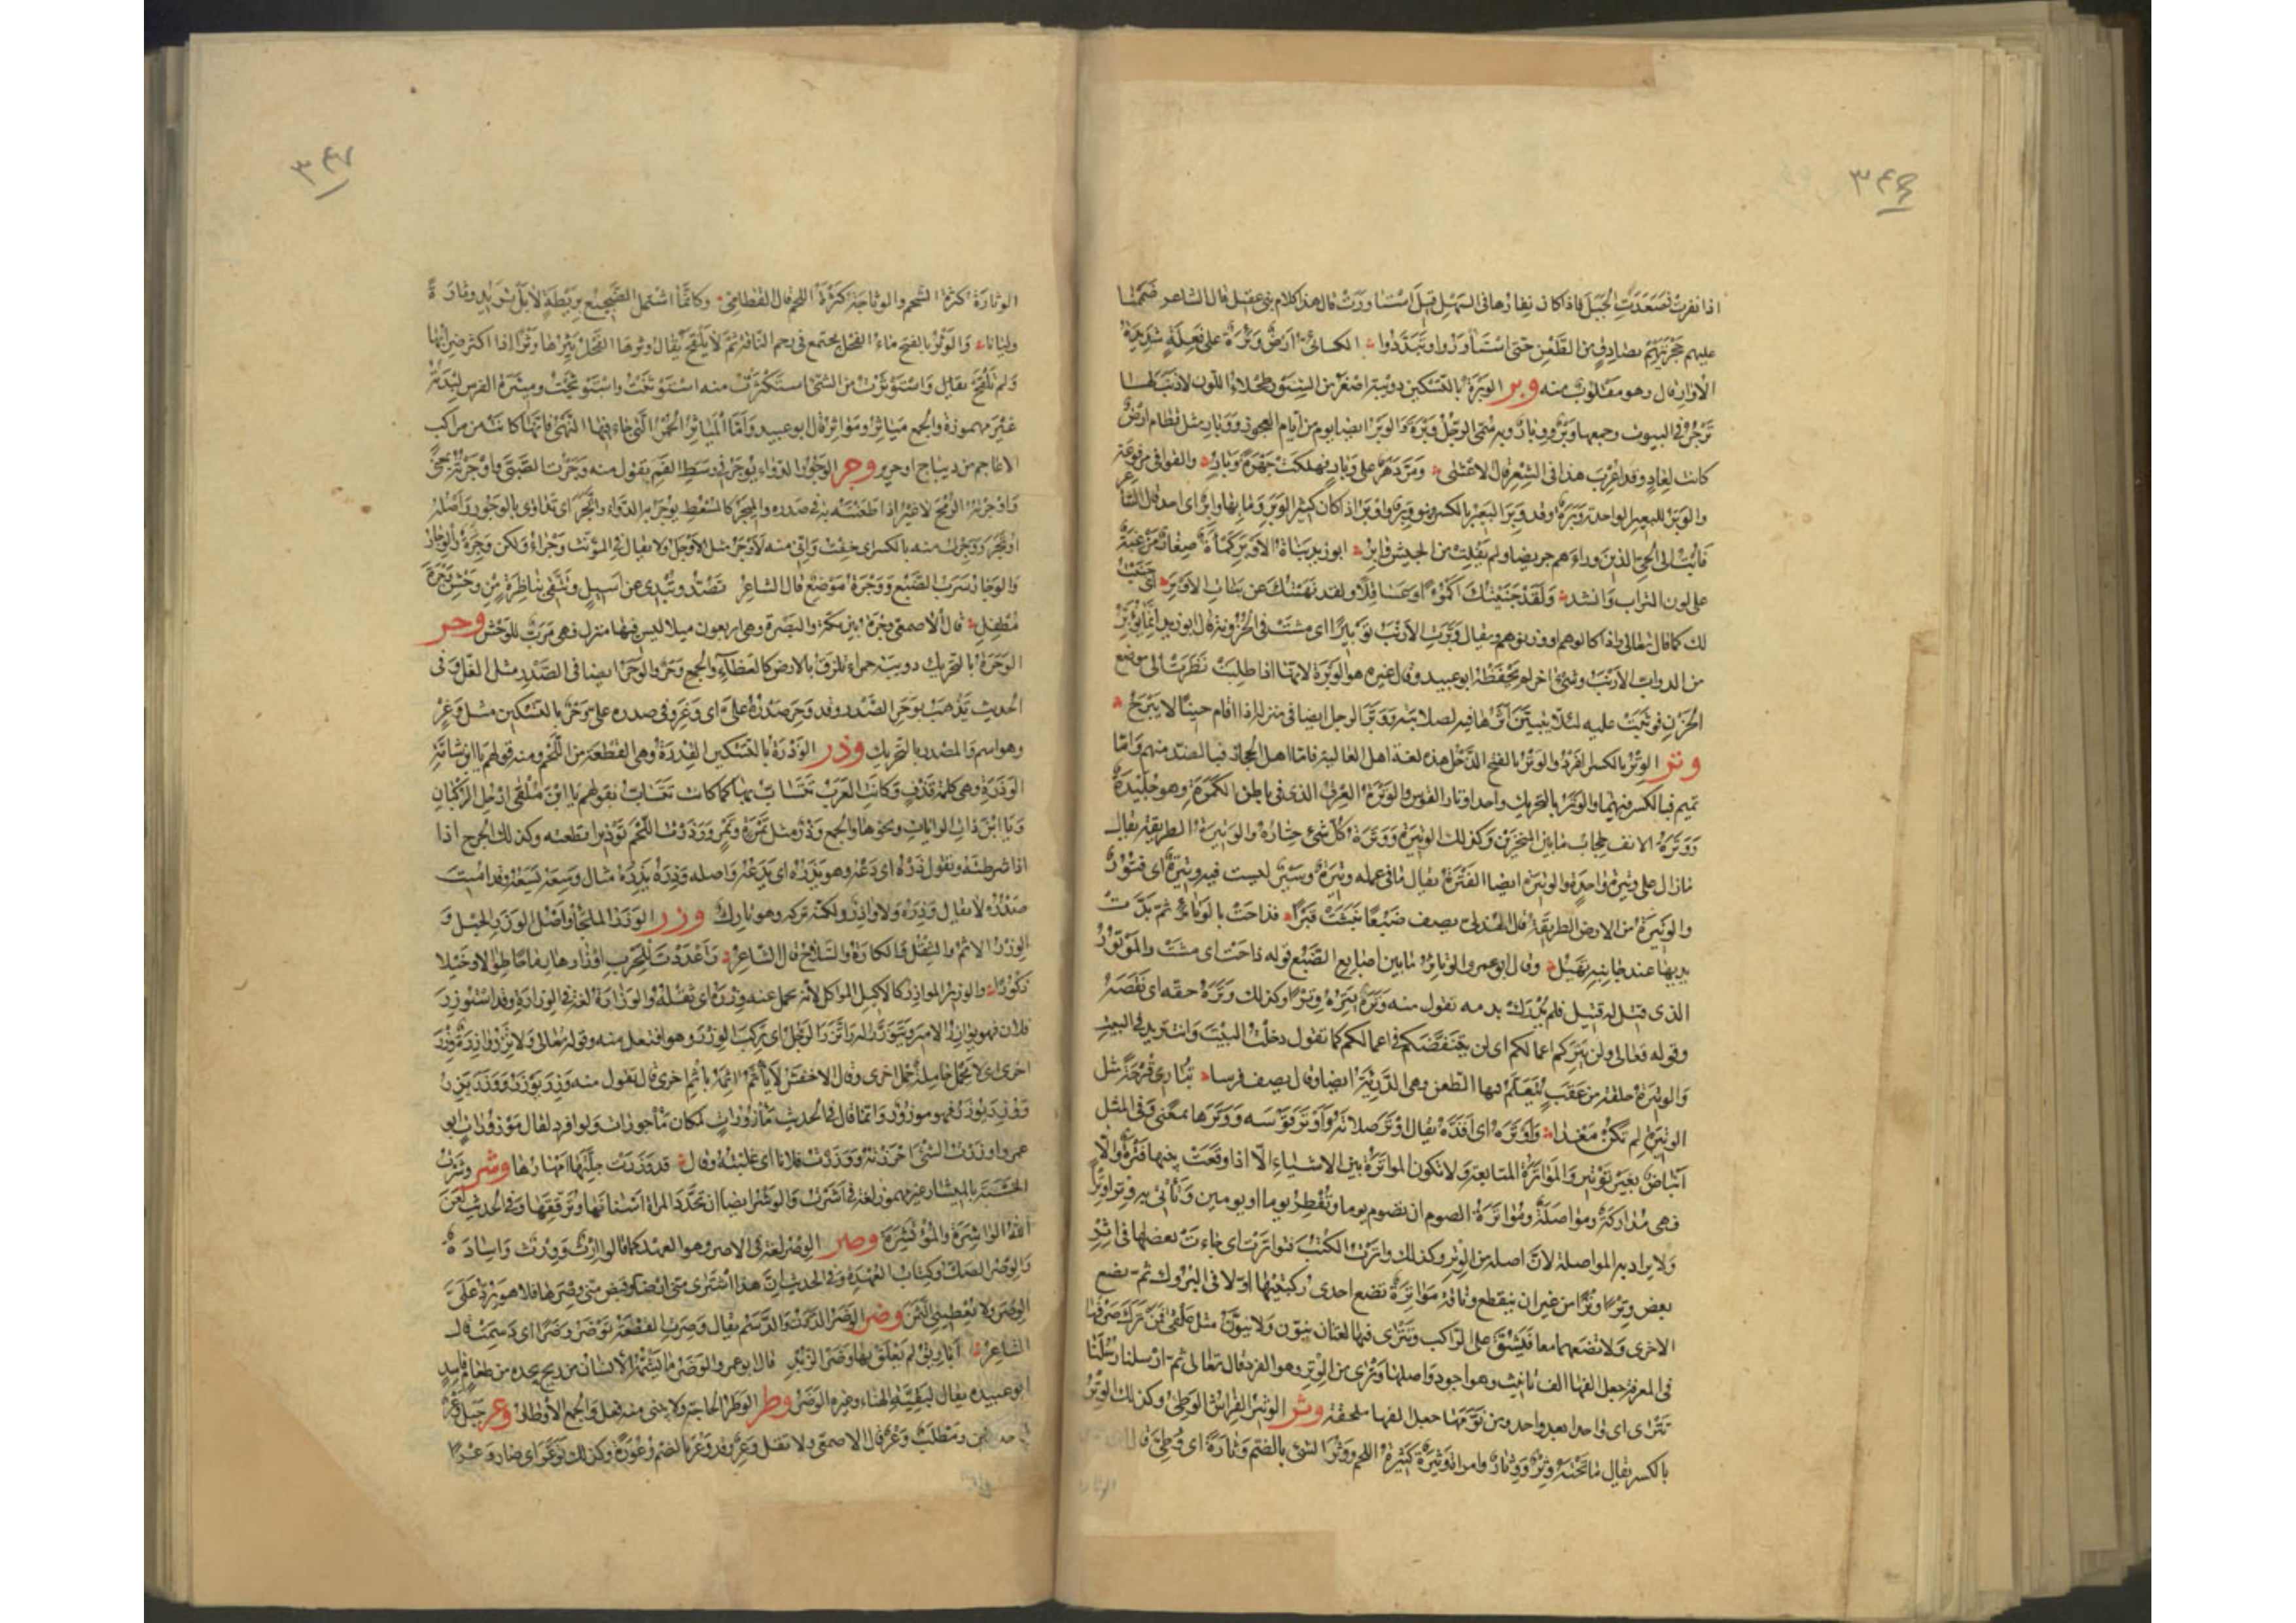 ٣٤٦
اذا نفرت فصعدت الجبل فاذا كان نفارها فى السهل قيل استاورت قال هذا كلام بنى عقيل قال الشاعر ضممنا
عليهم حجرتيهم بصادق من الطعن حتى استاوروا وتبددوا الكسائى ارض وئرة على فعلة شديدة
الاوار قال وهو مقلوب منه وبر الوبرة بالتسكين دويبة اصغر من السنور طحلاء اللون لا ذنب لها
ترجن فى البيوت وجمعها وبر ووبار وبه سمى الرجل وبرة والوبر ايضا يوم من ايام العجوز ووبار مثل قطام ارض
كانت لعاد وقد اعرب هذا فى الشعر قال الاعشى ومر دهر على وبار فهلكت جهرة وبار والقوافى مرفوعة
والوبر للبعير الواحدة وبرة وقد وبر البعير بالكسر فهو وبر واوبر اذا كان كثير الوبر وما بها وابر اى احد قال الشاعر
فابت الى الحى الذين وراءهم جريضا ولم يفلت من الجيش وابر ابو زيد بنات الاوبر كمأة صغار مزغبة
على لون التراب وانشد ولقد جنيتك اكمؤا وعساقلا ولقد نهيتك عن بنات الاوبر اى جنيت
لك كما قال تعالى واذا كالوهم او وزنوهم ويقال وبرت الارنب توبيرا اى مشت فى الحزونة قال ابو زيد انما يوبر
من الدواب الارنب وشئ اخر لم يحفظه ابو عبيد وقال غيره هو الوبرة لانها اذا طلبت نظرت الى موضع
الحزن فوثبت عليه لئلا يتبين اثرها فيه لصلابته ووبر الرجل ايضا فى منزله اذا اقام حينا لا يبرح
وتر الوتر بالكسر الفرد والوتر بالفتح الذحل هذه لغة اهل العالية فاما اهل الحجاز فبالضد منهم واما
تميم فبالكسر فيهما والوتر بالتحريك واحد اوتار القوس والوترة العرق الذى فى باطن الكمرة وهو جليدة
ووترة الانف حجاب ما بين المنخرين وكذلك الوتيرة ووترة كل شئ حتاره والوتيرة الطريقة يقال
مازال على وتيرة واحدة والوتيرة ايضا الفترة يقال ما فى عمله وتيرة وسير ليست فيه وتيرة اى فتور
والوتيرة من الارض الطريقة قال الهذلى يصف ضبعا نبشت قبرا فذاحت بالوتائر ثم بدت
يديها عند جانبه تهيل وقال ابو عمرو الوتائر ما بين اصابع الضبع قوله ذاحت اى مشت والموتور
الذى قتل له قتيل فلم يدرك بدمه تقول منه وتره يتره وترا وكذلك وتره حقه اى نقصه
وقوله تعالى ولن يتركم اعمالكم اى لن ينتقصكم فى اعمالكم كما تقول دخلت البيت وانت تريد فى البيت
والوتيرة حلقة من عقب يتعلم فيها الطعن وهى الدريئة ايضا وقال يصف فرسا تبارى قرحة مثل
الوتيرة لم تكن مغدا واوتره اى افذه يقال اوتر صلاته واوتر قوسه ووترها بمعنى وفى المثل
انباض بغير توتير والمواترة المتابعة ولا تكون المواترة بين الاشياء الا اذا وقعت بينها فترة والا
فهى مداركة ومواصلة ومواترة الصوم ان تصوم يوما وتفطر يوما او يومين وتاتى به وترا وترا
ولا يراد به المواصلة لان اصله من الوتر وكذلك واترت الكتب فتواترت اى جاءت بعضها فى اثر
بعض وترا وترا من غير ان ينقطع وناقة مواترة تضع احدى ركبتيها اولا فى البروك ثم تضع
الاخرى ولا تضعهما معا فيشق على الراكب وتترى فيها لغتان تنون ولا تنون مثل علقى فمن ترك صرفها
فى المعرفة جعل الفها الف تانيث وهو اجود واصلها وترى من الوتر وهو الفرد قال تعالى ثم ارسلنا رسلنا
تترى اى واحدا بعد واحد ومن نونها جعل الفها ملحقة وثر الوثير الفراش الوطئ وكذلك الوثر
بالكسر يقال ما تحته وثر ووثار وامراة وثيرة كثيرة اللحم ووثر الشئ بالضم وثارة اى وطئ قال
الوثارة
٣٤٧
الوثارة كثرة الشحم والوثاجة كثرة اللحم قال القطامى وكانما اشتمل الضجيع بريطة لا بل تزيد وثارة
وليانا والوثر بالفتح ماء الفحل يجتمع فى رحم الناقة ثم لا تلقح يقال وثرها الفحل يثرها وثرا اذا اكثر ضرابها
ولم تلقح يقال واستوثرت من الشئ استكثرت منه استوثنت واستوثجت وميثرة الفرس لبدته
غير مهموزة والجمع مياثر ومواثر قال ابو عبيد واما المياثر الحمر التى جاء فيها النهى فانها كانت من مراكب
الاعاجم من ديباج او حرير وجر الوجور الدواء يوجر فى وسط الفم يقول منه وجرت الصبى واوجرته بمعنى
واوجرته الرمح لا غير اذا طعنته به فى صدره والميجر كالمسعط يوجر به الدواء واتجر اى تداوى بالوجور واصله
اوتجر ووجرت منه بالكسر اى خفت وانى منه لاوجر مثل لاوجل ولا يقال فى المؤنث وجراء ولكن وجرة والوجار
والوجار سرب الضبع ووجرة موضع قال الشاعر تصد وتبدى عن اسيل وتتقى بناظرة من وحش وجرة
مطفل قال الاصمعى وجرة بين مكة والبصرة وهى اربعون ميلا ليس فيها منزل فهى مرب للوحش وحر
الوحرة بالتحريك دويبة حمراء تلزق بالارض كالعظاء والجمع وحر والوحر ايضا فى الصدر مثل الغل وفى
الحديث يذهب بوحر الصدر وقد وحر صدره على اى وغر وفى صدره على وحر بالتسكين مثل وغر
وهو اسم والمصدر بالتحريك وذر الوذرة بالتسكين الفدرة وهى القطعة من اللحم ومنه قولهم يا ابن شامة
الوذرة وهى كلمة قذف وكانت العرب تتساب بها كما كانت تتساب بقولهم يا ابن ملقى ارحل الركبان
ويا ابن ذات الرايات ونحوها والجمع وذر مثل تمرة وتمر ووذرت اللحم توذيرا قطعته وكذلك الجرح اذا
اذا شرطته وتقول ذره اى دعه وهو يذره اى يدعه واصله وذره يذره مثال وسعه يسعه وقد اميت
صدره لا يقال وذره ولا واذر ولكن تركه وهو تارك وزر الوزر الملجأ واصل الوزر الجبل و
الوزر الاثم والثقل والكارة والسلاح قال الشاعر واعددت للحرب اوزارها رماحا طوالا وخيلا
ذكورا والوزير الموازر كالاكيل المواكل لانه يحمل عنه وزره اى ثقله والوزارة لغة فى الوزارة وقد استوزر
فلان فهو يوازر الامير ويتوزر له واتزر الرجل اى ركب الوزر وهو افتعل منه وقوله تعالى ولا تزر وازرة وزر
اخرى اى لا تحمل حاملة حمل اخرى وقال الاخفش لا يأثم اثمة باثم اخرى قال تقول منه وزر يوزر ووزر يزر
ووزر يوزر فهو موزور وانما قال فى الحديث مأزورات لمكان مأجورات ولو افرد لقال موزورات ابو
عمرو اوزرت الشئ احرزته ووزرت فلانا اى غلبته وقال قد وزرت جلتها امهارها وشر وشرت
الخشبة بالميشار غير مهموز لغة فى اشرت والوشر ايضا ان تحدد المراة اسنانها وترققها وفى الحديث لعن
الله الواشرة والمؤتشرة وصر الوصر لغة فى الاصر وهو العهد كما قالوا ارث وورث واسادة
والوصر الصك وكتاب العهدة وفى الحديث ان هذا اشترى منى ارضا وقبض منى وصرها فلا هو يرد على
الوصر ولا يعطينى الثمن وضر الوضر الدرن والدسم يقال وضرت القصعة توضر وضرا اى دسمت قال
الشاعر اباريق لم يعلق بها وضر الزبد قال ابو عمرو الوضر ما يشمه الانسان من ريح يجده من طعام فاسد
ابو عبيدة يقال لبقية الهناء وغيره الوضر وطر الوطر الحاجة ولا يبنى منه فعل والجمع الاوطار وعر جبل وعر
ومطلب وعر قال الاصمعى ولا تقل وعر وقد وعر بالضم وعورة وكذلك توعر اى صار وعرا